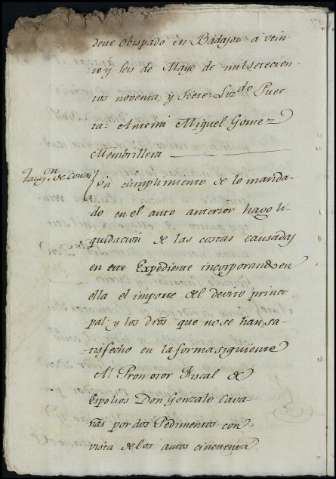 deve obispado en Badajoz a vein
te y seis de Mayo de mil setecien
tos noventa y siete: Liz.do Puer
ta: Antemi Miguel Gomez
Membrillera
En cumplimiento de lo manda
do en el auto anterior hago li
quidacion de las costas causadas
en este Expediente incorporando en
ella el importe del devito princi
pal y los dros que no se han sa
tisfecho en la forma siguiente
Al Promotor Fiscal de
Espolios Don Gonzalo Cava
por dos Pedimentos con
vista de los autos cincuenta